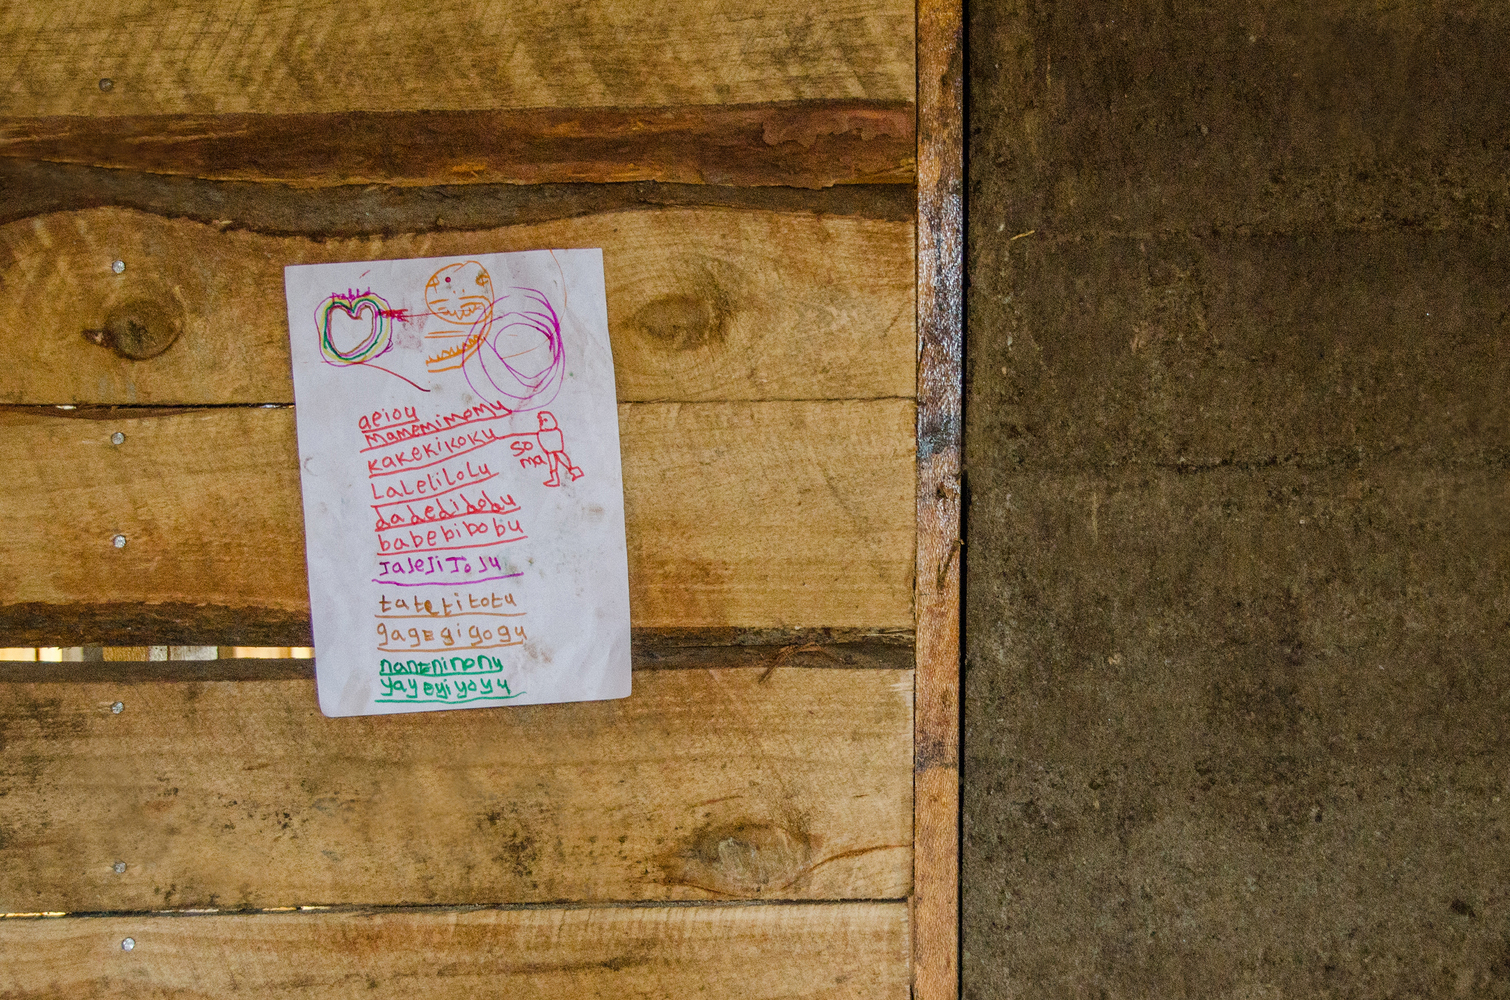 aeiou
mamemimomu
kakekikoku
Lalelilolu
so
ma
dadedidodu
babebibobu
JaJeJiJoJu
tatetitotu
gagegigogu
naneninonu
yayeyiyoyu